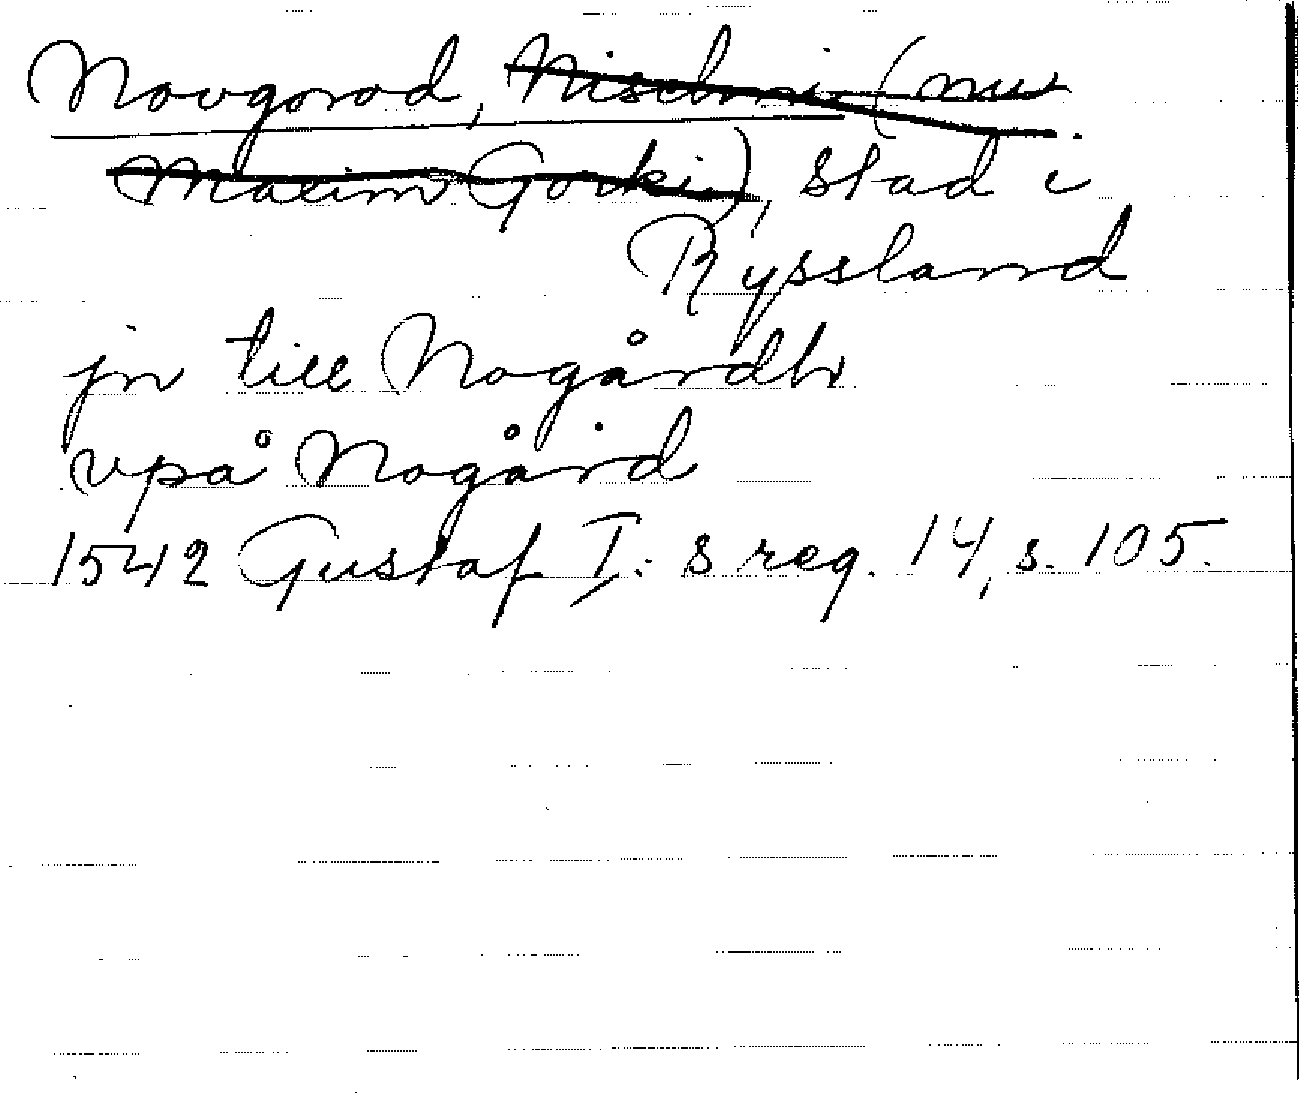 Novgorod, Nischni (nu
Maxim Gorki), stad i
Ryssland
jn till Nogårdh
vpå Nogård
1542 Gustaf I:s reg. 14, s. 105.